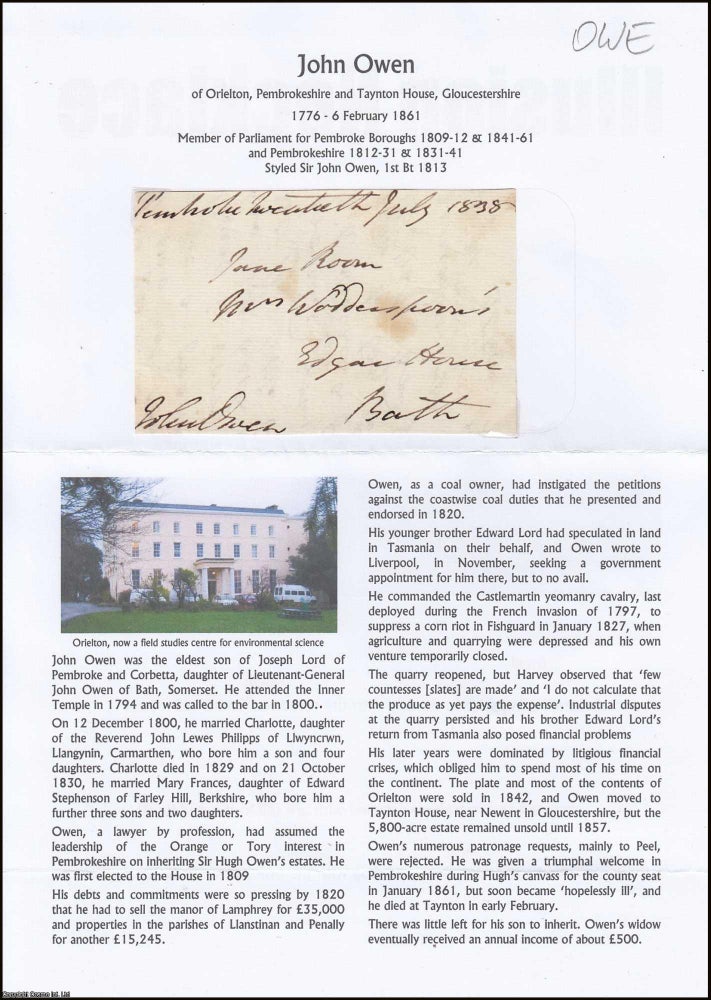 OWE
John Owen
of Orielton, Pembrokeshire and Taynton House, Gloucestershire
1776 - 6 February 1861
Member of Parliament for Pembroke Boroughs 1809-12 & 1841-61
and Pembrokeshire 1812-31 & 1831-41
Styled Sir John Owen, 1st Bt 1813
Pembroke twentieth July 1838
Jane Room
Mrs Wodderspoon's
Edgar House
Bath
John Owen
Orielton, now a field studies centre for environmental science
John Owen was the eldest son of Joseph Lord of
Pembroke and Corbetta, daughter of Lieutenant-General
John Owen of Bath, Somerset. He attended the Inner
Temple in 1794 and was called to the bar in 1800..
On 12 December 1800, he married Charlotte, daughter
of the Reverend John Lewes Philipps of Llwyncrwn,
Llangynin, Carmarthen, who bore him a son and four
daughters. Charlotte died in 1829 and on 21 October
1830, he married Mary Frances, daughter of Edward
Stephenson of Farley Hill, Berkshire, who bore him a
further three sons and two daughters.
Owen, a lawyer by profession, had assumed the
leadership of the Orange or Tory interest in
Pembrokeshire on inheriting Sir Hugh Owen's estates. He
was first elected to the House in 1809
His debts and commitments were so pressing by 1820
that he had to sell the manor of Lamphrey for £35,000
and properties in the parishes of Llanstinan and Penally
for another £15,245.
Owen, as a coal owner, had instigated the petitions
against the coastwise coal duties that he presented and
endorsed in 1820.
His younger brother Edward Lord had speculated in land
in Tasmania on their behalf, and Owen wrote to
Liverpool, in November, seeking a government
appointment for him there, but to no avail.
He commanded the Castlemartin yeomanry cavalry, last
deployed during the French invasion of 1797, to
suppress a corn riot in Fishguard in January 1827, when
agriculture and quarrying were depressed and his own
venture temporarily closed.
The quarry reopened, but Harvey observed that 'few
countesses [slates] are made' and 'I do not calculate that
the produce as yet pays the expense'. Industrial disputes
at the quarry persisted and his brother Edward Lord's
return from Tasmania also posed financial problems
His later years were dominated by litigious financial
crises, which obliged him to spend most of his time on
the continent. The plate and most of the contents of
Orielton were sold in 1842, and Owen moved to
Taynton House, near Newent in Gloucestershire, but the
5,800-acre estate remained unsold until 1857.
Owen's numerous patronage requests, mainly to Peel,
were rejected. He was given a triumphal welcome in
Pembrokeshire during Hugh's canvass for the county seat
in January 1861, but soon became 'hopelessly ill', and
he died at Taynton in early February.
There was little left for his son to inherit. Owen's widow
eventually received an annual income of about £500.
Copyright Cosmo Ltd